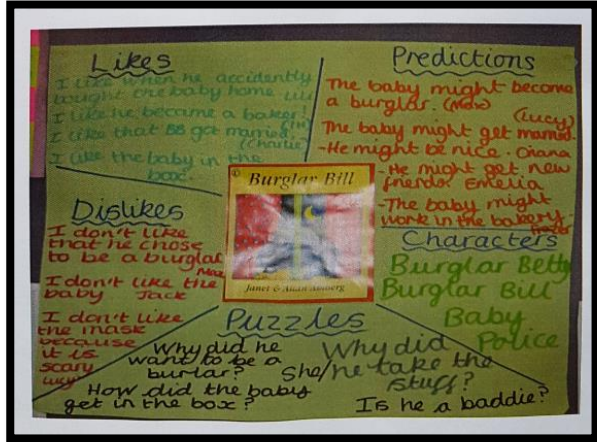 Likes
I like when he accidently
bought the baby home
I like he became a baker!
I like that BB got married.
(Charlie)
I like the baby in the
box.
Predictions
The baby might become
a burglar. (Max)
(Lucy)
The baby might get married.
-He might be nice. Oriana
-He might get new
friends. Emelia
-The baby might
work in the bakery-
Frazer
Burglar Bill
Janet & Allan Ahlberg
Dislikes
I don't like
that he chose
to be a burglar
Max
I don't like the
baby Jack
I don't like
the mask
because
it is
scary
Lucy
Characters
Burglar Betty
Burglar Bill
Baby
Police
Puzzles
Why did he
want to be a
burlar?
How did the baby
get in the box?
Why did
She/he take the
stuff?
Is he a baddie?